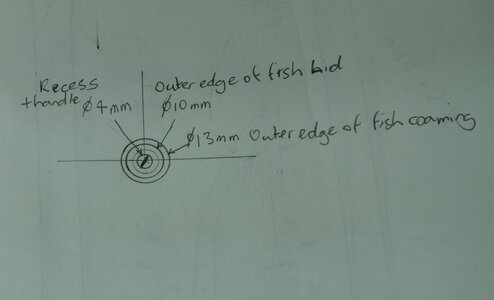 Recess
+handle ϕ4mm
Outer edge of fish lid
ϕ10mm
ϕ13mm Outer edge of fish coaming